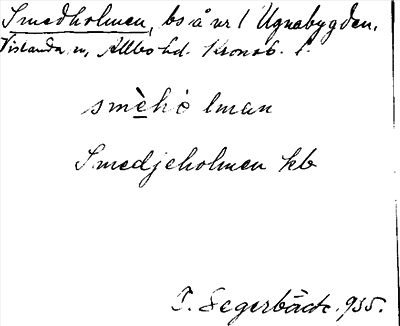 Smedholmen, bs å nr 1 Ugnabygden.
Vislanda sn, Allbo hd. Kronob. l.
smèhò lman
Smedjeholmen kb
T. Segerbäck. 935.